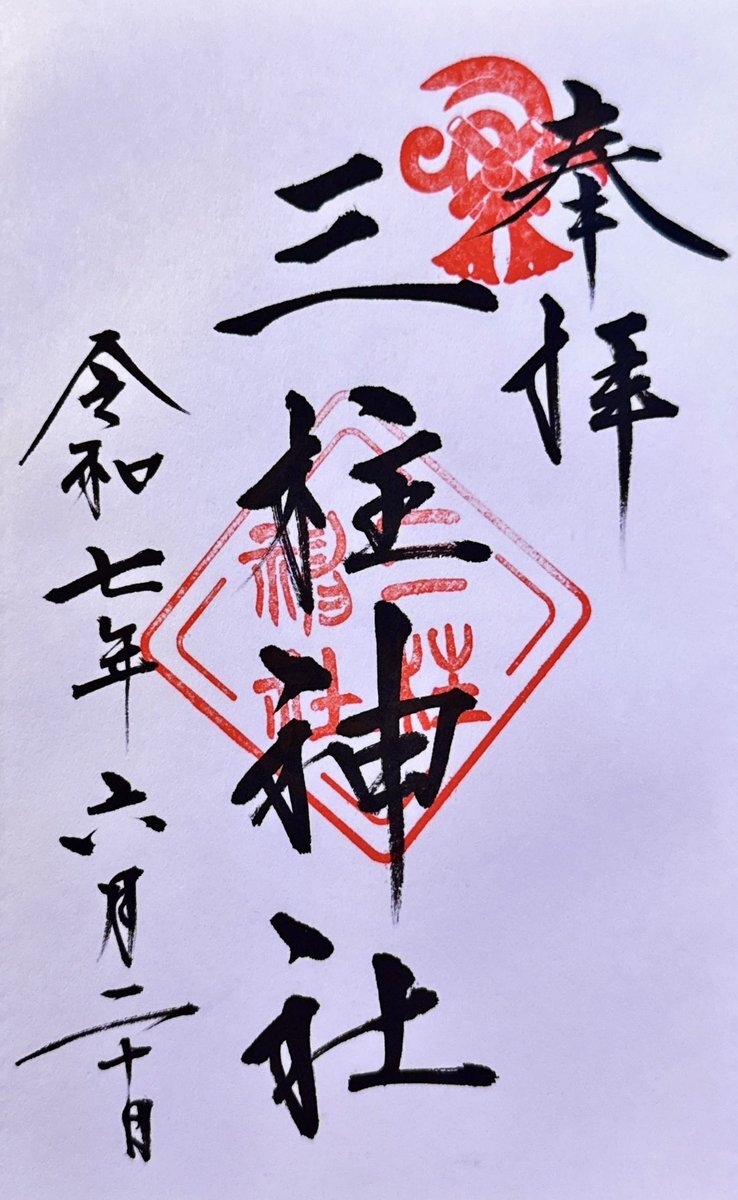 奉拝
三柱神社
三柱
神社
令和七年六月二十日